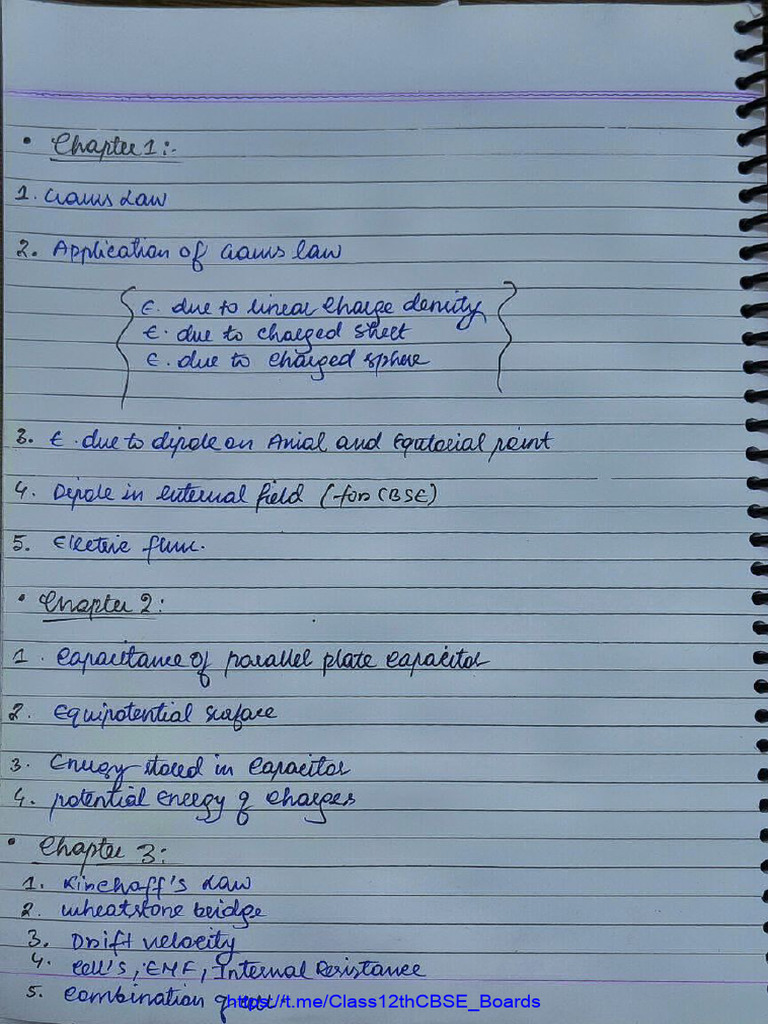 • Chapter 1:-
1. Gauss Law
2. Application of Gauss law
E. due to linear charge density
E. due to charged sheet
E. due to charged sphere
3. E. due to dipole on Axial and Equtorial point
4. Dipole in external field (for CBSE)
5. Electric flux.
• Chapter 2:
1. Capacitance of parallel plate capacitor
2. Equipotential surface
3. Energy stored in capacitor
4. potential energy of charges
• Chapter 3:
1. Kirchoff's Law
2. wheatstone bridge
3. Drift velocity
4. Cell's, EMF, Internal Resistance
5. Combination of
https://t.me/Class12thCBSE_Boards